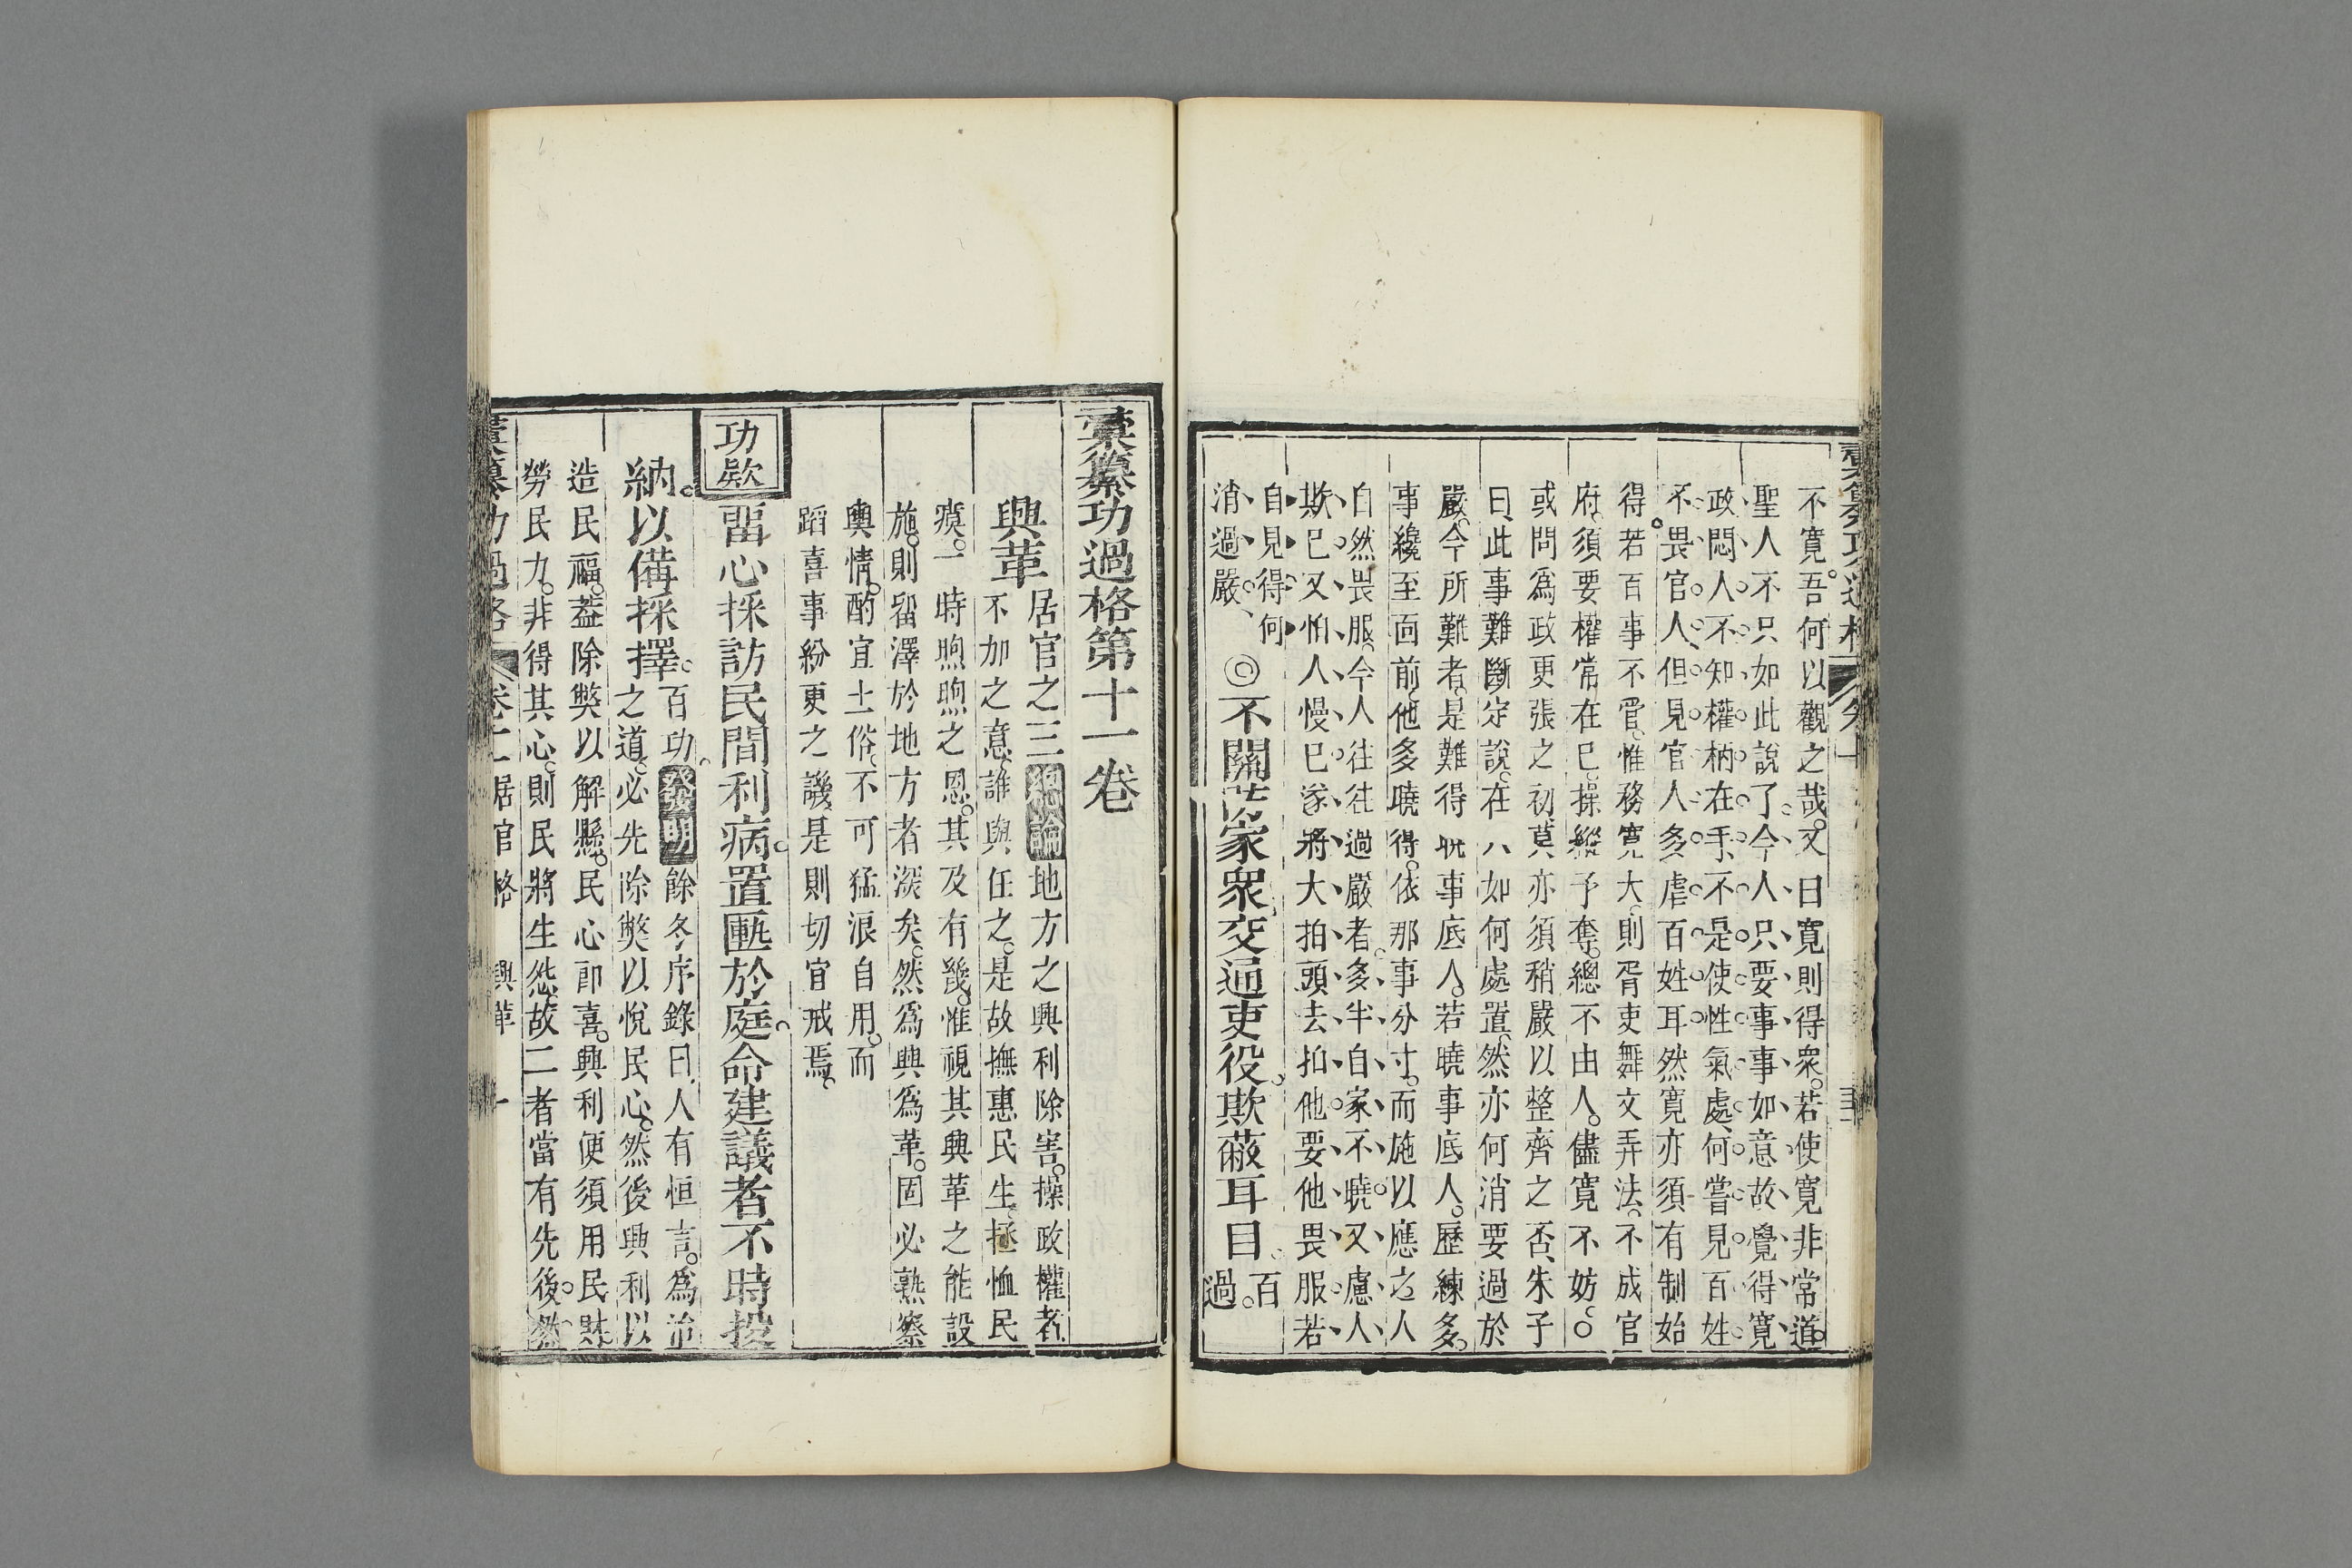 不寬吾何以觀之哉又曰寬則得衆若使寬非常道
聖人不只如此說了今人只要事事如意故覺得寬
政悶人不知權柄在手不是使性氣處何嘗見百姓
不畏官人但見官人多虐百姓耳然寬亦須有制始
得若百事不管惟務寬大則胥吏舞文弄法不成官
府須要權常在己操縱予奪總不由人儘寬不妨○
或問爲政更張之初莫亦須稍嚴以整齊之否朱子
曰此事難斷定說在人如何處置然亦何消要過於
嚴今所難者是難得曉事底人若曉事底人歷練多
事纔至面前他多曉得依那事分寸而施以應之人
自然畏服今人往往過嚴者多半自家不曉又慮人
欺己又怕人慢己遂將大拍頭去拍他要他畏服若
自見得何
消過嚴
◎不關防家衆交通吏役欺蔽耳目百
過
彙纂功過格第十一卷
興革居官之三總論地方之興利除害操政權者
不加之意誰與任之是故撫惠民生拯恤民
瘼一時煦煦之恩其及有幾惟視其興革之能設
施則留澤於地方者深矣然爲興爲革固必熟察
輿情酌宜土俗不可猛浪自用而
蹈喜事紛更之譏是則切宜戒焉
功款
留心採訪民間利病置匭於庭命建議者不時投
納以備採擇百功發明餘冬序錄曰人有恒言爲治
之道必先除獘以悅民心然後興利以
造民福葢除獘以解懸民心卽喜興利便須用民財
勞民力非得其心則民將生怨故二者當有先後然
彙纂功過格 卷十一 居官格 興革 一